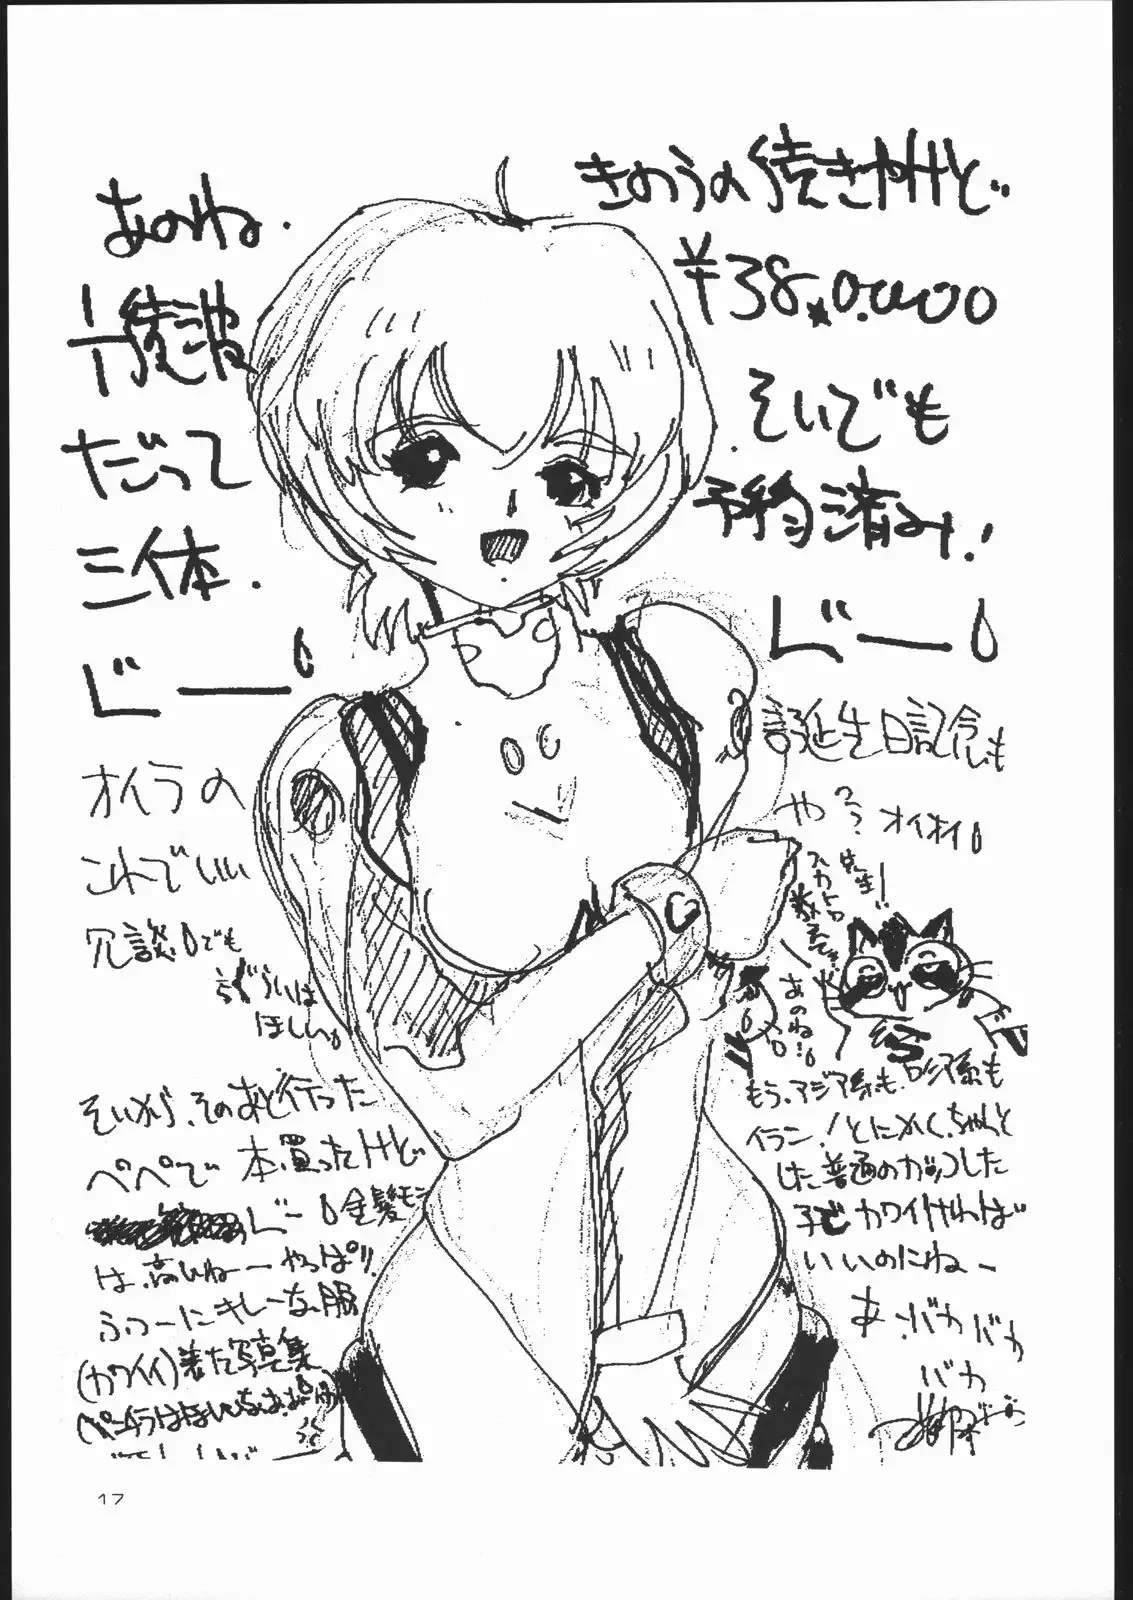 きのうの続きやけど
¥38,0000
そいでも
予約済み!
じー
誕生日記念も
やっ? オイオイ
先生!
あのね!
もう、アジア系も
イラン!とにかく、ちゃんと
した普通のカッコした
カワイければ
いいのにね〜
あ、バカバカ
バカ
あのね.
綾波
だって
三体.
じー
オイラの
これでいい
冗談でも
ほしい。
そいから、そのあと行った
ペペで 本買ったけど
じー 金髪モノ
は、高いねーやっぱり
ふつーにキレーな服
(カワイイ)着た写真集
17